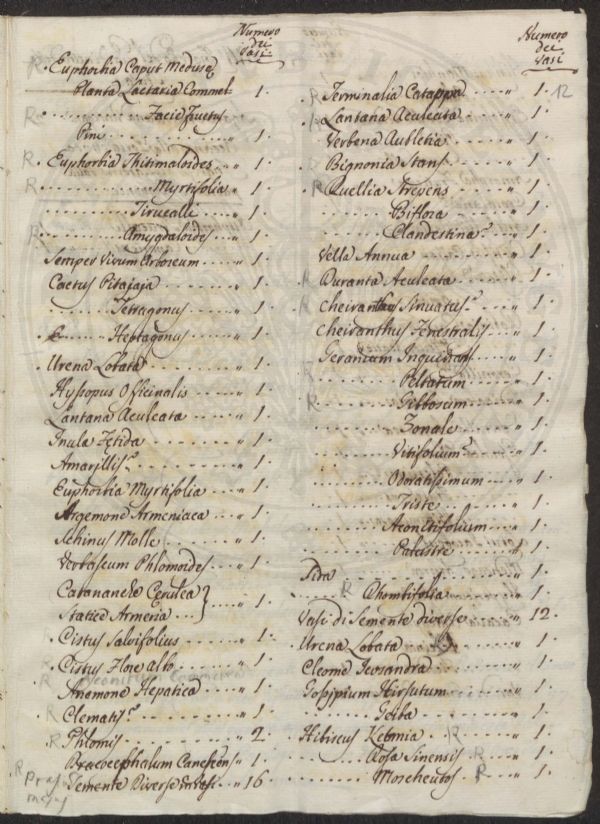 Numero
dei
Vasi
R. Euphorbia Caput Meduse
Planta Lactaria Commel. 1.
R. Facie fructus
Pini 1.
R. Euphorbia Thitimaloides 1.
R Myrtifolia 1.
Tirucalli 1.
R Amygdaloides 1.
Semper Vivum Arboreum 1.
Cactus Pitajaja 1.
Tetragonus 1.
Heptagonus 1.
Urena Lobata 1.
Hyssopus Officinalis 1.
Lantana Aculeata 1.
Inula Fetida 1.
Amarjllis? 1.
Euphorbia Myrtifolia 1.
Argemone Armeniaca 1.
Schinus Molle 1.
Verbascum Phlomoides 1.
Catananche Cerulea
Statice Armeria } 1.
Cistus Salvifolius 1.
R Cistus Flore albo 1.
Anemone Hepatica 1.
R Clematis? 1.
R Phlomis 2.
Dracocephalum Canes 1.
R
Semente Diverse Vasi 16.
Numero
dei
Vasi
R Terminalia Catappa 1. 12
Lantana Aculeata 1.
Verbena Aubletia 1.
R Bignonia Stans 1.
R Ruellia Strepens 1.
Biflora 1.
Clandestina? 1.
Vella Annua 1.
R Duranta Aculeata 1.
R Cheiranthus Sinuatus? 1.
Cheiranthus Fenestralis 1.
Geranium Inquinans 1.
Peltatum 1.
R Gibbosum 1.
Zonale 1.
Vitifolium? 1.
Odoratissimum 1.
Triste 1.
Aconitifolium 1.
Palustre 1.
Sida 1.
R Rhombifolia 1.
Vasi di Semente diverse 12.
Urena Lobata 1.
Cleome Icosandra 1.
Gossipium Hirsutum 1.
1.
Hibiscus Ketmia R 1.
Rosa Sinensis R 1.
Moscheutos R 1.